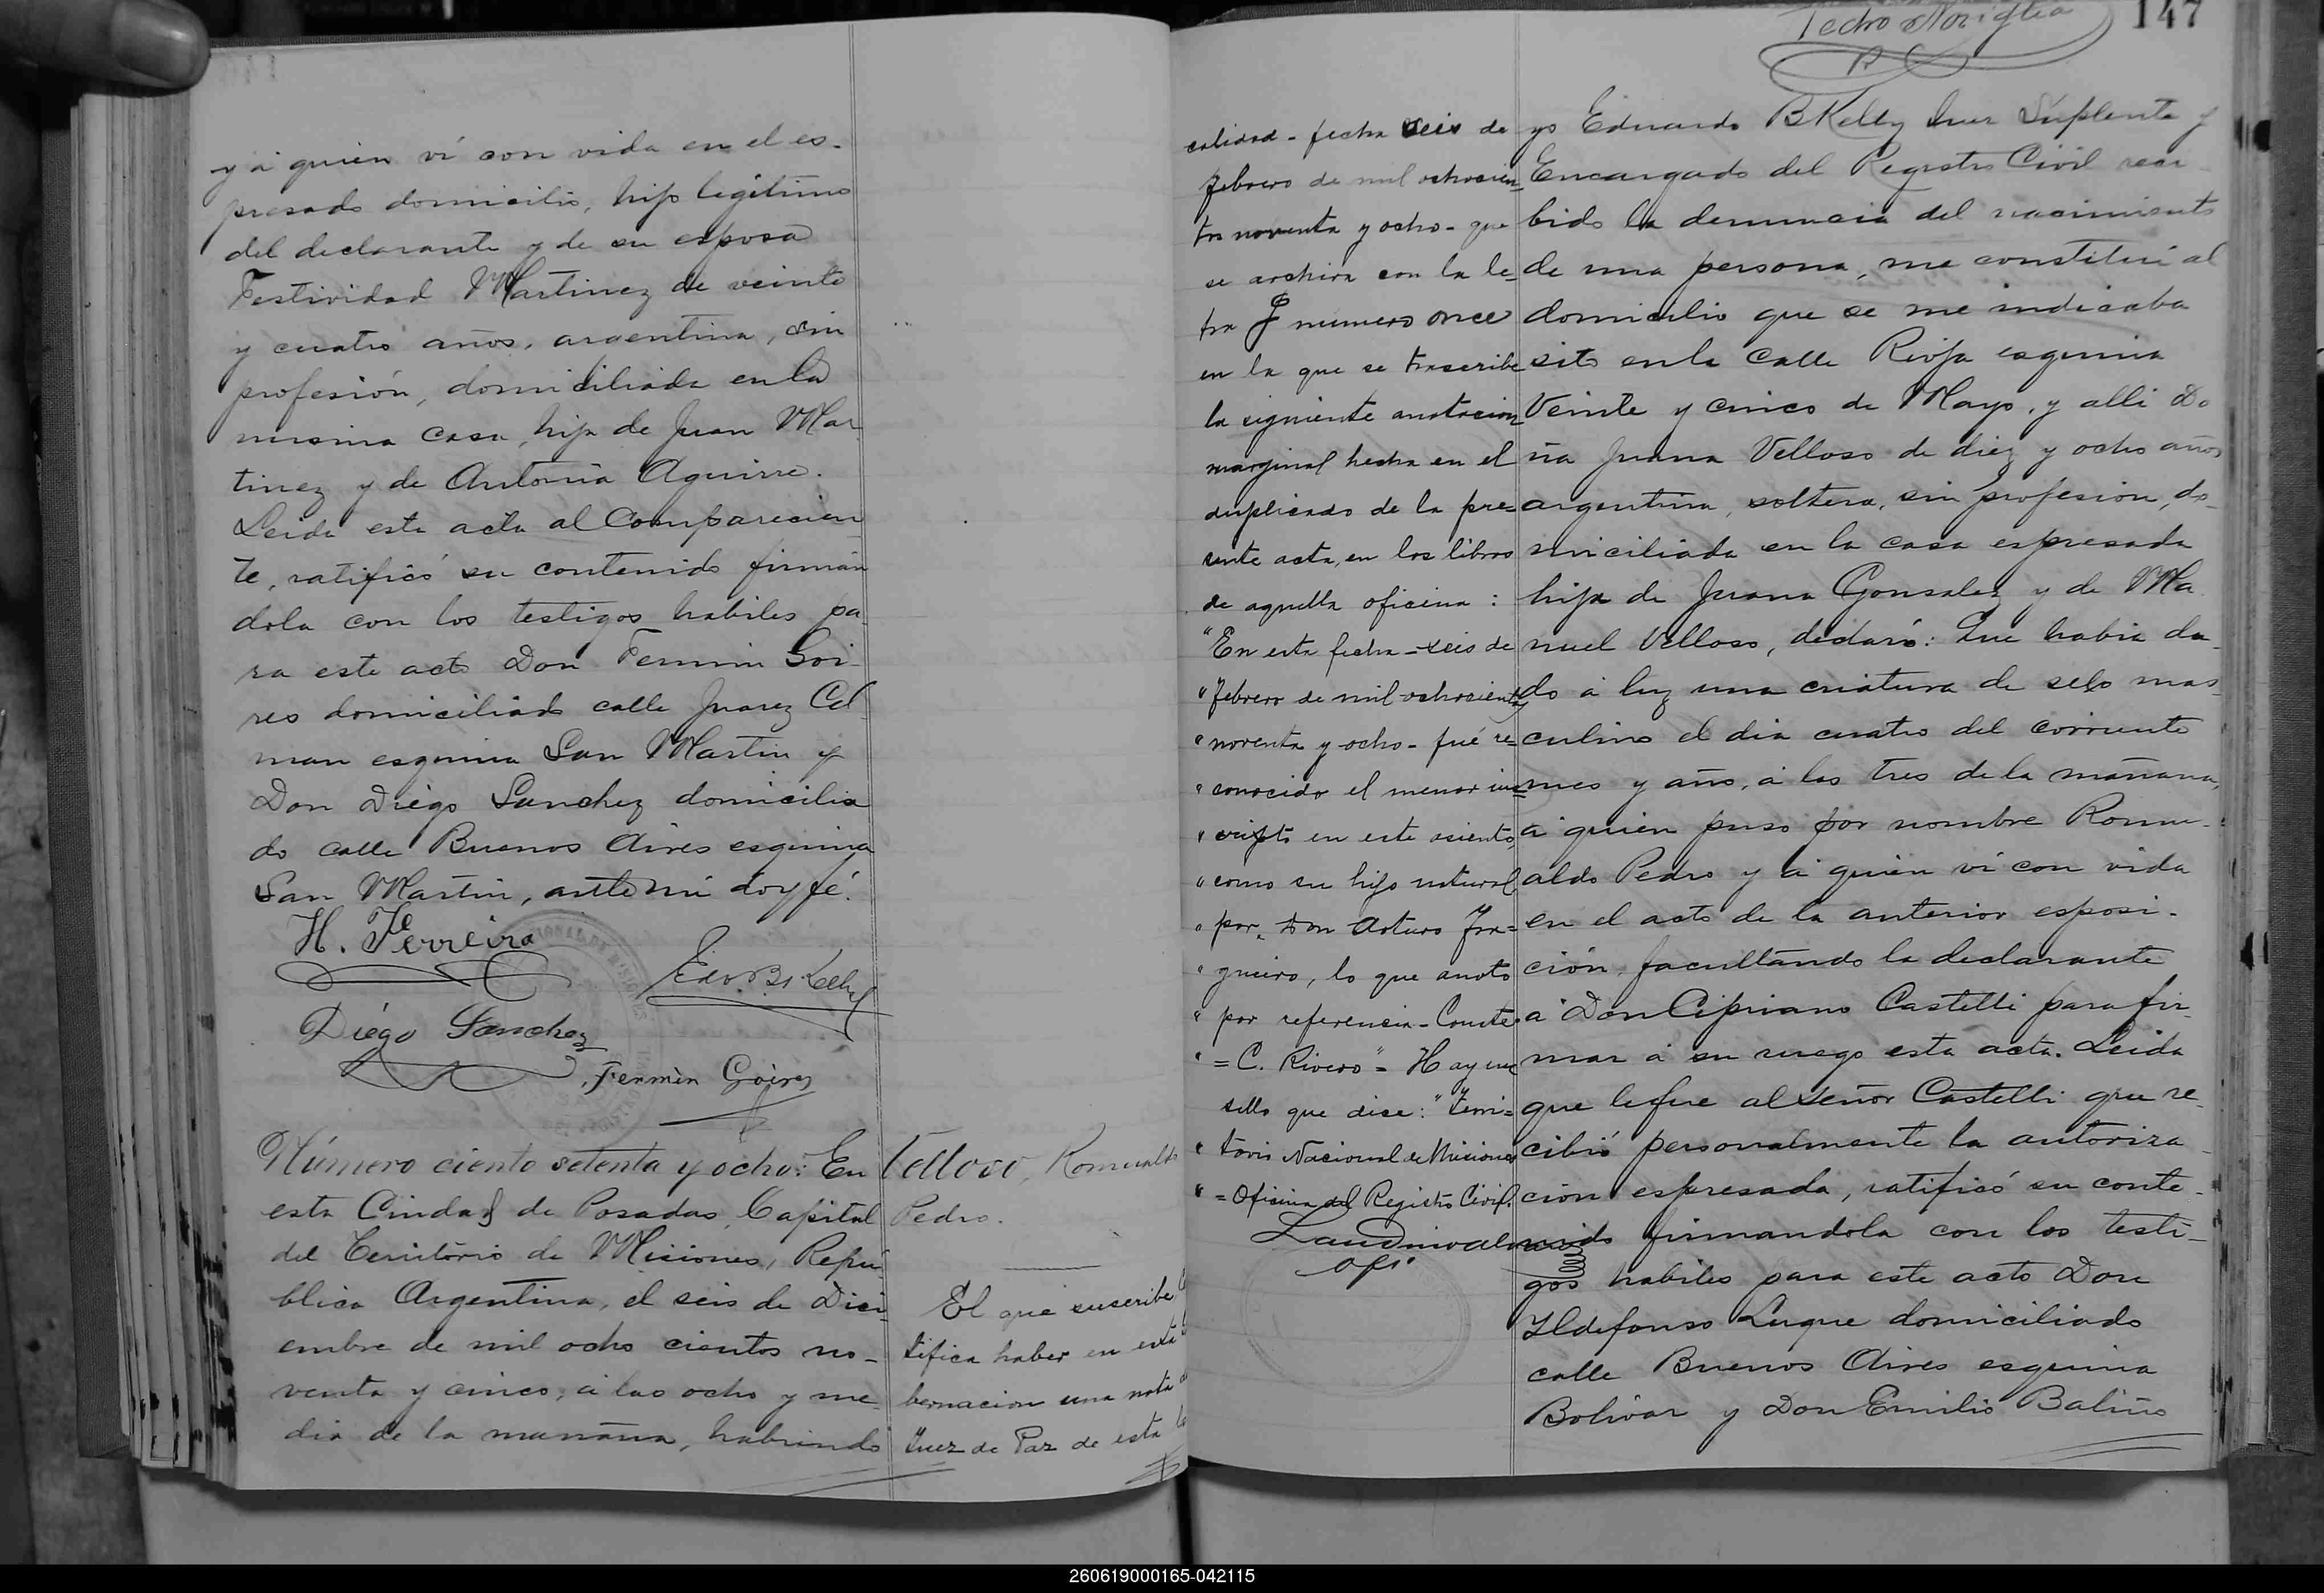 y á quien ví con vida en el es-
presado domicilio, hijo legítimo
del declarante y de su esposa
Festividad Martinez de veinte
y cuatro años, argentina, sin
profesión, domiciliada en la
misma casa, hija de Juan Mar
tinez y de Antonia Aguirre.
Leida esta acta al Comparecien
te, ratificó su contenido firman
dola con los testigos habiles pa
ra este acto Don Fermin Goi-
res domiciliado calle Juarez Cel
man esquina San Martin y
Don Diego Sanchez domicilia
do calle Buenos Aires esquina
San Martin, ante mi doy fé.
H. Ferreira
Edo. B. Kelly
Diégo Sanchez
Fermin Goires
Número ciento setenta y ocho: En
esta Ciudad de Posadas, Capital
del Territorio de Misiones, Repú
blica Argentina, el seis de Dici
embre de mil ocho cientos no-
venta y cinco, á las ocho y me
dia de la mañana, habiendo
Velloso, Romualdo
Pedro.
El que suscribe
tifica haber en esta
bernacion una nota
Juez de Paz de esta lo
147
calidad - fecha seis de
febrero de mil ochocien
tos noventa y ocho - que
se archiva con la le-
tra J numero once
en la que se trascribe
la siguiente anotacion
marginal hecha en el
duplicado de la pre=
sente acta, en los libros
de aquella oficina :
"En esta fecha - seis de
" febrero de mil ochocientos
" noventa y ocho - fué re=
" conocido el menor ins=
" cripto en este asiento,
" como su hijo natural
" por Don Arturo Fra=
" gueiro, lo que anoto
" por referencia - Conste.
" = C. Rivero" = Hay un
sello que dice: "Terri=
" torio Nacional de Misiones
" = Oficina del Registro Civil.
Ofi
Pedro Noriglia
yo Eduardo B Kelly Juez Suplente y
Encargado del Registro Civil reci
bido la denuncia del nacimiento
de una persona, me constituí al
domicilio que se me indicaba
sito en la calle Rioja esquina
Veinte y cinco de Mayo, y alli Do
ña Juana Velloso de diez y ocho años
argentina, soltera, sin profesion, do-
miciliada en la casa espresada
hija de Juana Gonzalez y de Ma
nuel Velloso, declaró: Que habia da-
do á luz una criatura de sexo mas-
culino el dia cuatro del corriente
mes y año, á las tres de la mañana,
á quien puso por nombre Romu-
aldo Pedro y á quien ví con vida
en el acto de la anterior esposi-
ción, facultando la declarante
á Don Cipriano Castelli para fir
mar á su ruego esta acta. Leida
que le fue al Señor Castelli que re-
cibió personalmente la autoriza-
ción espresada, ratificó su conte-
nido firmandola con los testi-
gos habiles para este acto Don
Ildefonso Luque domiciliado
calle Buenos Aires esquina
Bolivar y Don Emilio Baliño
260619000165-042115